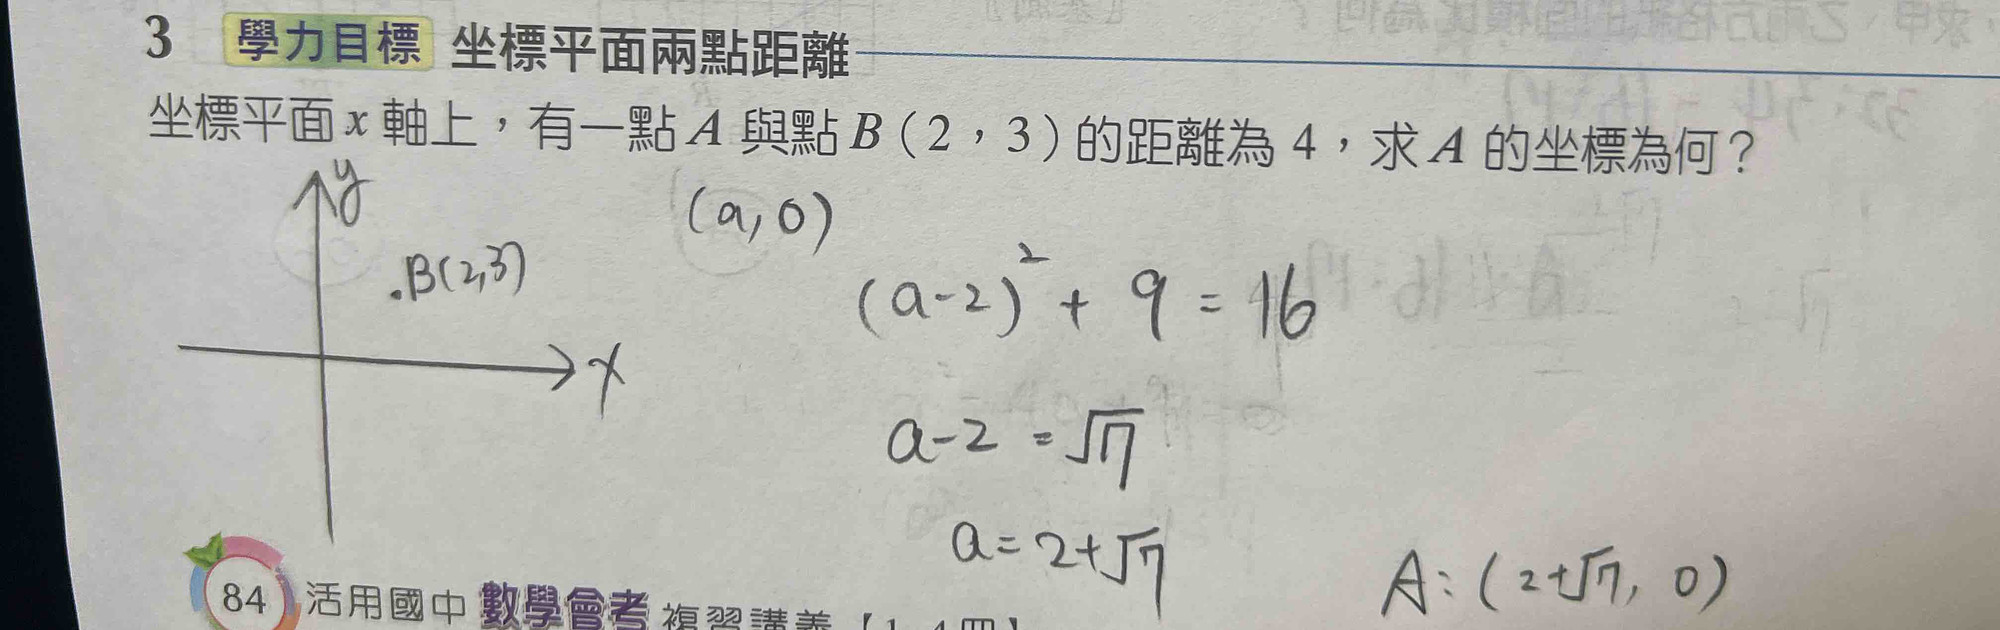 3 學力目標 坐標平面兩點距離
坐標平面 x 軸上，有一點 A 與點 B（2，3）的距離為 4，求 A 的坐標為何？
y
(a, 0)
.B(2,3)
(a-2)² + 9 = 16
x
a-2 = √7
a = 2+√7
A: (2+√7, 0)
84 活用國中 數學會考 複習講義